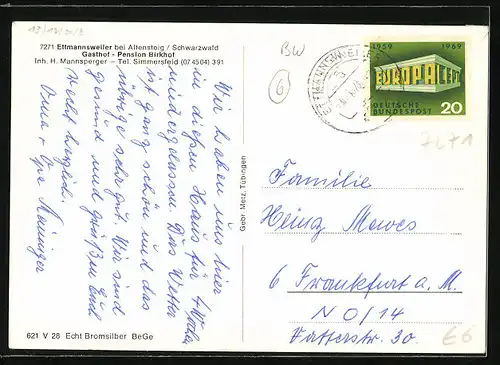 13/17/0/8
7271 Ettmannsweiler bei Altensteig / Schwarzwald
Gasthof - Pension Birkhof
Inh. H. Mannsperger — Tel. Simmersfeld (07 45 04) 391
Wir haben uns hier
in diesem Haus für 1 Woche
niedergelassen. Das Wetter
ist ganz schön und das
übrige sehr gut. Wir sind
gesund und grüßen Euch
recht herzlich.
Oma + Opa
621 V 28 Echt Bromsilber BeGe
Gebr. Metz, Tübingen
BW
6
1959 1969
EUROPA CEPT
DEUTSCHE
BUNDESPOST 20
7271
Familie
Heinz Mewes
6 Frankfurt a. M.
NO/14
30
€6